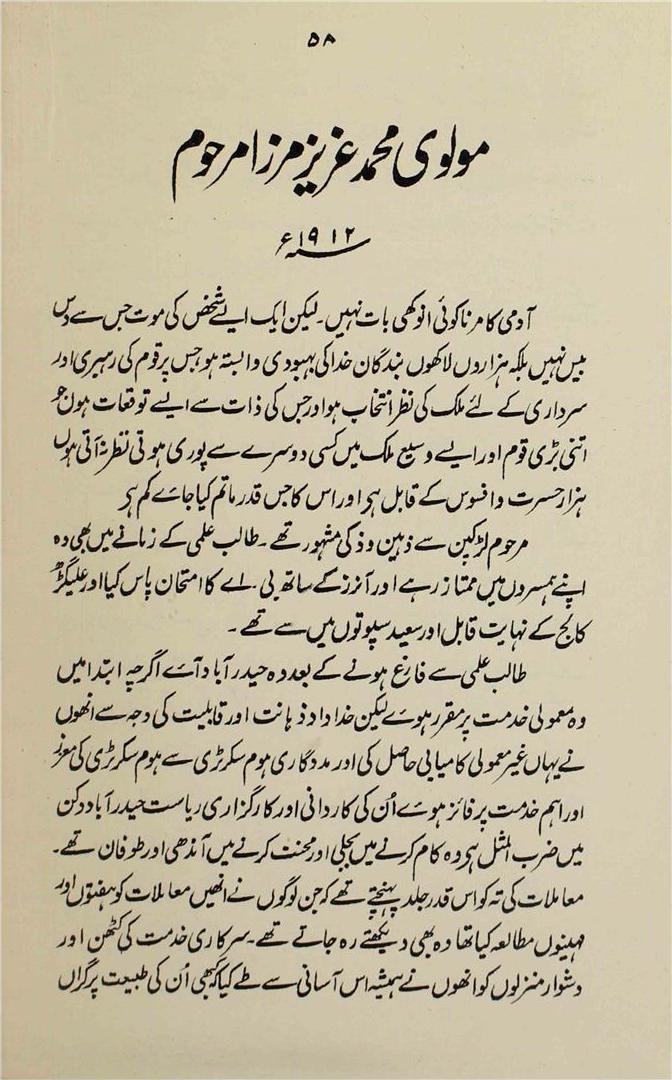 ۵۸
مولوی محمد عزیز مرزا مرحوم
سنہ ۱۹۱۲ء
آدمی کا مرنا کوئی انوکھی بات نہیں۔ لیکن ایک ایسے شخص کی موت جس سے دس
بیس نہیں بلکہ ہزاروں لاکھوں بندگان خدا کی بہبودی وابستہ ہو جس پر قوم کی رہبری اور
سرداری کے لئے ملک کی نظر انتخاب ہو اور جس کی ذات سے ایسے توقعات ہوں جو
اتنی بڑی قوم اور ایسے وسیع ملک میں کسی دوسرے سے پوری ہوتی نظر نہ آتی ہوں
ہزار حسرت و افسوس کے قابل ہی اور اس کا جس قدر ماتم کیا جاے کم ہی
مرحوم لڑکپن سے ذہین و ذکی مشہور تھے۔ طالب علمی کے زمانے میں بھی وہ
اپنے ہمسروں میں ممتاز رہے اور آنرز کے ساتھ بی۔ اے کا امتحان پاس کیا اور علیگڑھ
کالج کے نہایت قابل اور سعید سپوتوں میں سے تھے۔
طالب علمی سے فارغ ہونے کے بعد وہ حیدرآباد آے اگرچہ ابتدا میں
وہ معمولی خدمت پر مقرر ہوے لیکن خداداد ذہانت اور قابلیت کی وجہ سے انھوں
نے یہاں غیر معمولی کامیابی حاصل کی اور مددگاری ہوم سکرٹری سے ہوم سکرٹری کی معزز
اور اہم خدمت پر فائز ہوے اُن کی کاردانی اور کارگزاری ریاست حیدرآباد دکن
میں ضرب المثل ہی وہ کام کرنے میں بجلی اور محنت کرنے میں آندھی اور طوفان تھے۔
معاملات کی تہ کو اس قدر جلد پہنچتے تھے کہ جن لوگوں نے انھیں معاملات کو ہفتوں اور
مہینوں مطالعہ کیا تھا وہ بھی دیکھتے رہ جاتے تھے۔ سرکاری خدمت کی کٹھن اور
دشوار منزلوں کو انھوں نے ہمیشہ اس آسانی سے طے کیا کہ کبھی اُن کی طبیعت پر گراں